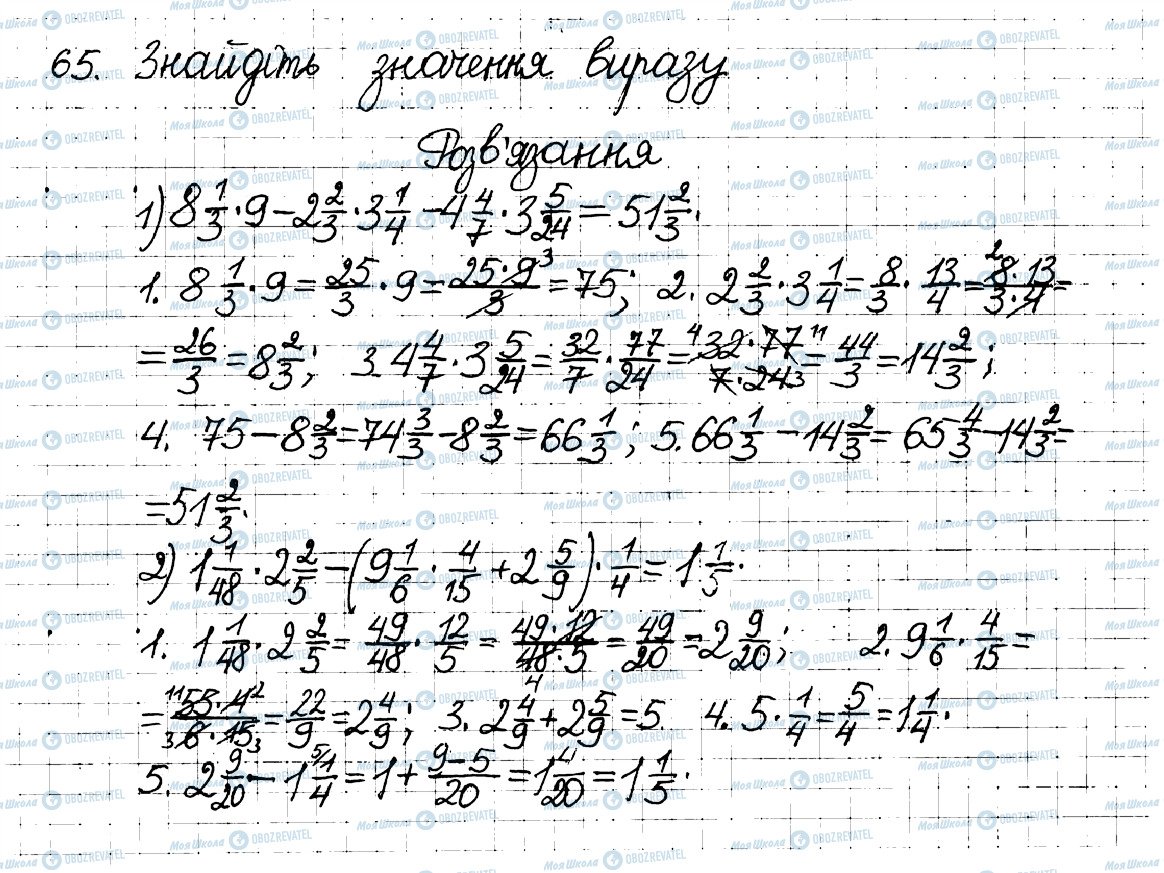 65. Знайдіть значення виразу
Розв'язання
1) 8 1/3 · 9 − 2 2/3 · 3 1/4 − 4 4/7 · 3 5/24 = 51 2/3.
1. 8 1/3 · 9 = 25/3 · 9 = 25·9³/3 = 75; 2. 2 2/3 · 3 1/4 = 8/3 · 13/4 = ²8·13/3·4 =
= 26/3 = 8 2/3; 3. 4 4/7 · 3 5/24 = 32/7 · 77/24 = ⁴32·77¹¹/7·24₃ = 44/3 = 14 2/3;
4. 75 − 8 2/3 = 74 3/3 − 8 2/3 = 66 1/3; 5. 66 1/3 − 14 2/3 = 65 4/3 − 14 2/3 =
= 51 2/3.
2) 1 1/48 · 2 2/5 − (9 1/6 · 4/15 + 2 5/9) · 1/4 = 1 1/5.
1. 1 1/48 · 2 2/5 = 49/48 · 12/5 = 49·12/48·5 = 49/20 = 2 9/20; 2. 9 1/6 · 4/15 =
= ¹¹55·4²/₃6·15₃ = 22/9 = 2 4/9; 3. 2 4/9 + 2 5/9 = 5. 4. 5 · 1/4 = 5/4 = 1 1/4.
5. 2 9/20 − 1 ⁵/1/4 = 1 + 9−5/20 = 1 4/20 = 1 1/5.